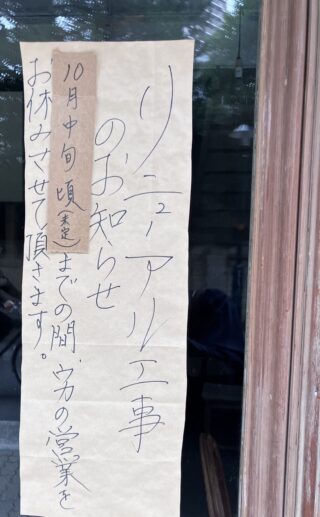 リニューアル工事
のお知らせ
10月中旬頃(未定)までの間、ウカの営業を
お休みさせて頂きます。